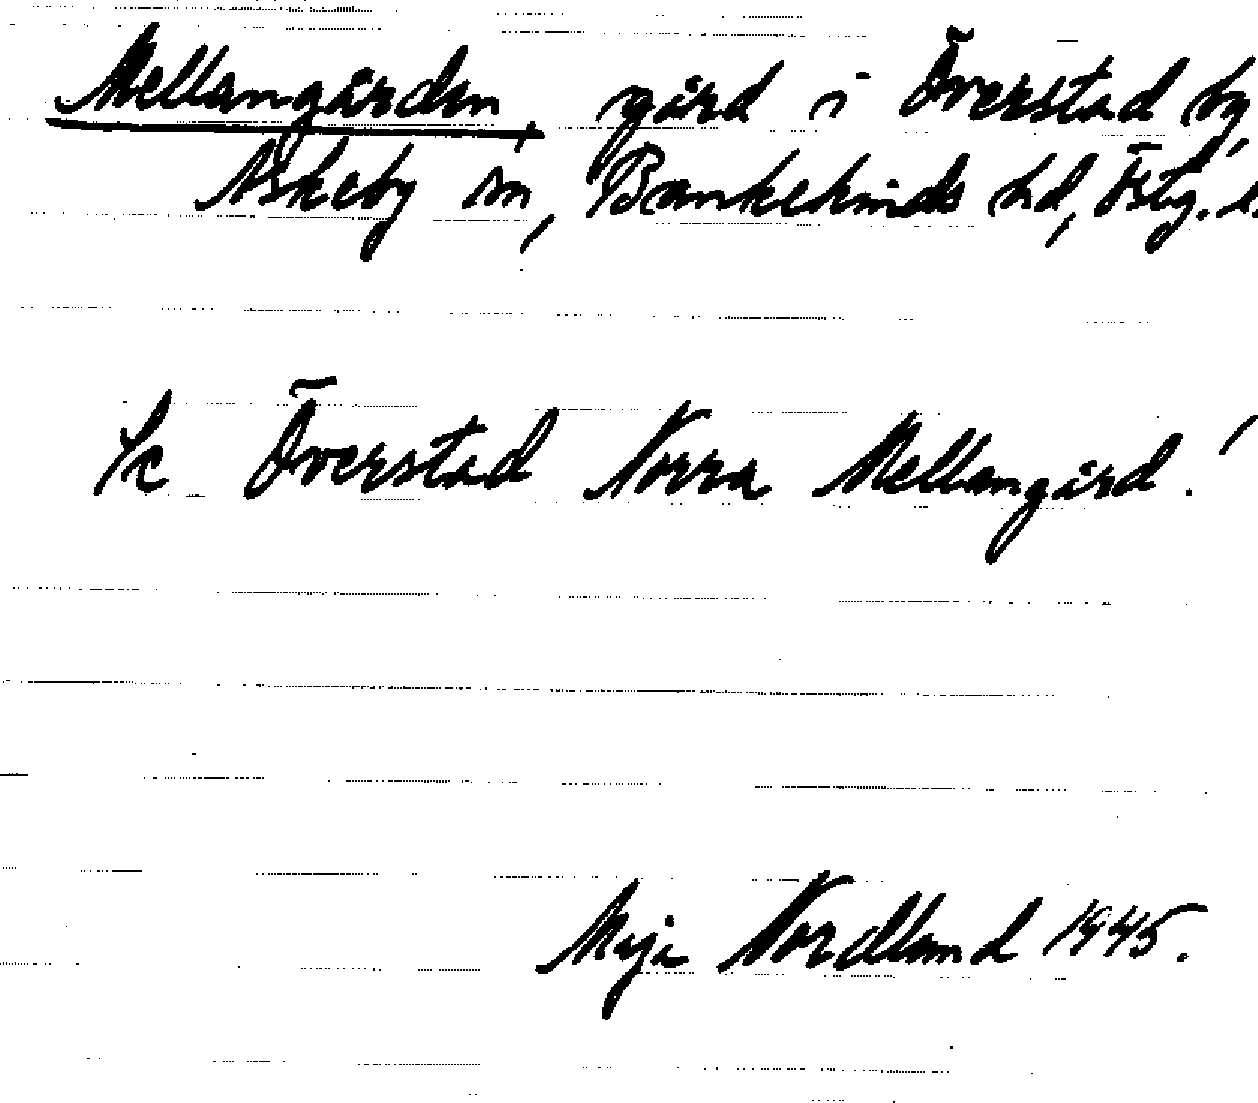 Mellangården, gård i Överstad by,
Askeby sn, Bankekinds hd, Östg. l.
Se Överstad Norra Mellangård.
Maja Nordlund 1945.